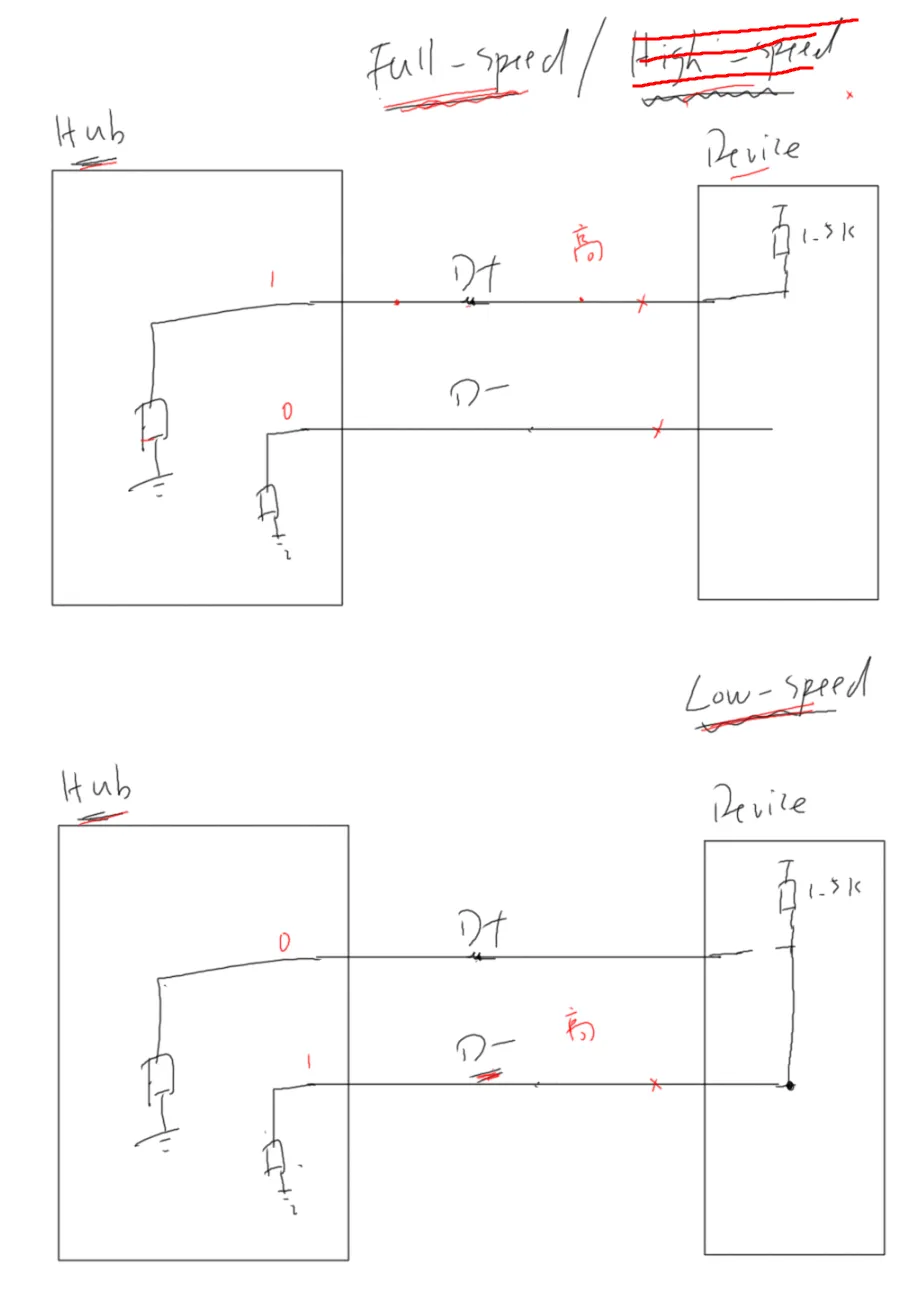 Full-speed / High-speed
Hub
Device
1.5K
高
D+
1
D-
0
Low-speed
Hub
Device
1.5K
D+
0
高
D-
1